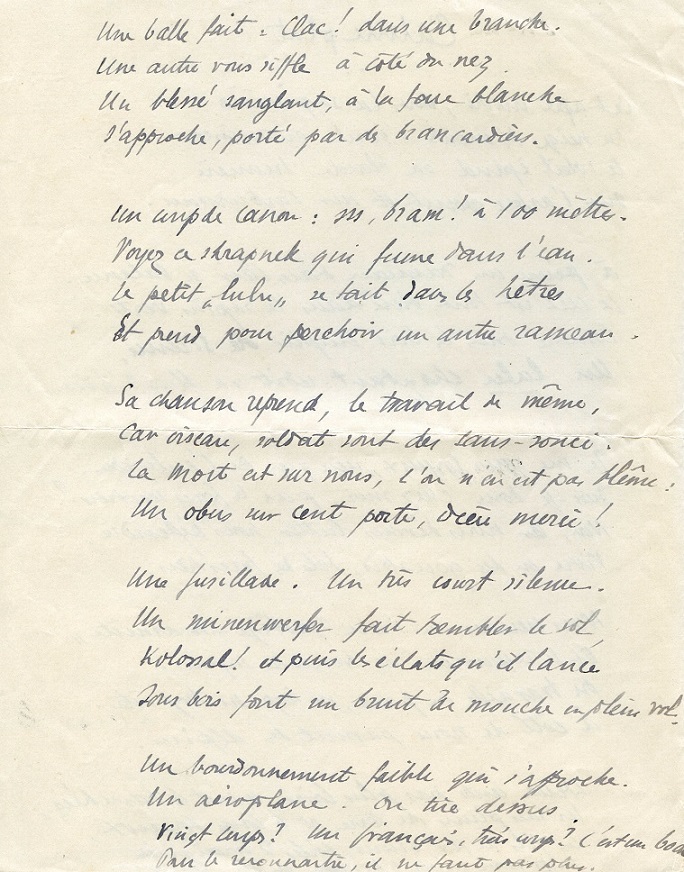 Une balle fait : Clac! dans une branche.
Une autre vous siffle à côté du nez
Un blessé sanglant, à la face blanche
S'approche, porté par des brancardiers.
Un coup de canon : sss, bram! à 100 mètres.
Voyez ce shrapnel qui fume dans l'eau.
Le petit „lulu„ se tait dans les hêtres
Et prend pour perchoir un autre rameau.
Sa chanson reprend, le travail de même,
Car oiseau, soldat sont des sans-souci.
La mort est sur nous, l'on n'en est pas blême :
Un obus sur cent porte, Dieu merci!
Une fusillade. Un très court silence.
Un minenwerfer fait trembler le sol,
Kolossal! et puis les éclats qu'il lance
Sous bois font un bruit de mouche en plein vol.
Un bourdonnement faible qui s'approche.
Un aéroplane. On tire dessus
Vingt coups? un français, trois coups? C'est un
Pour le reconnaître, il ne faut pas plus.